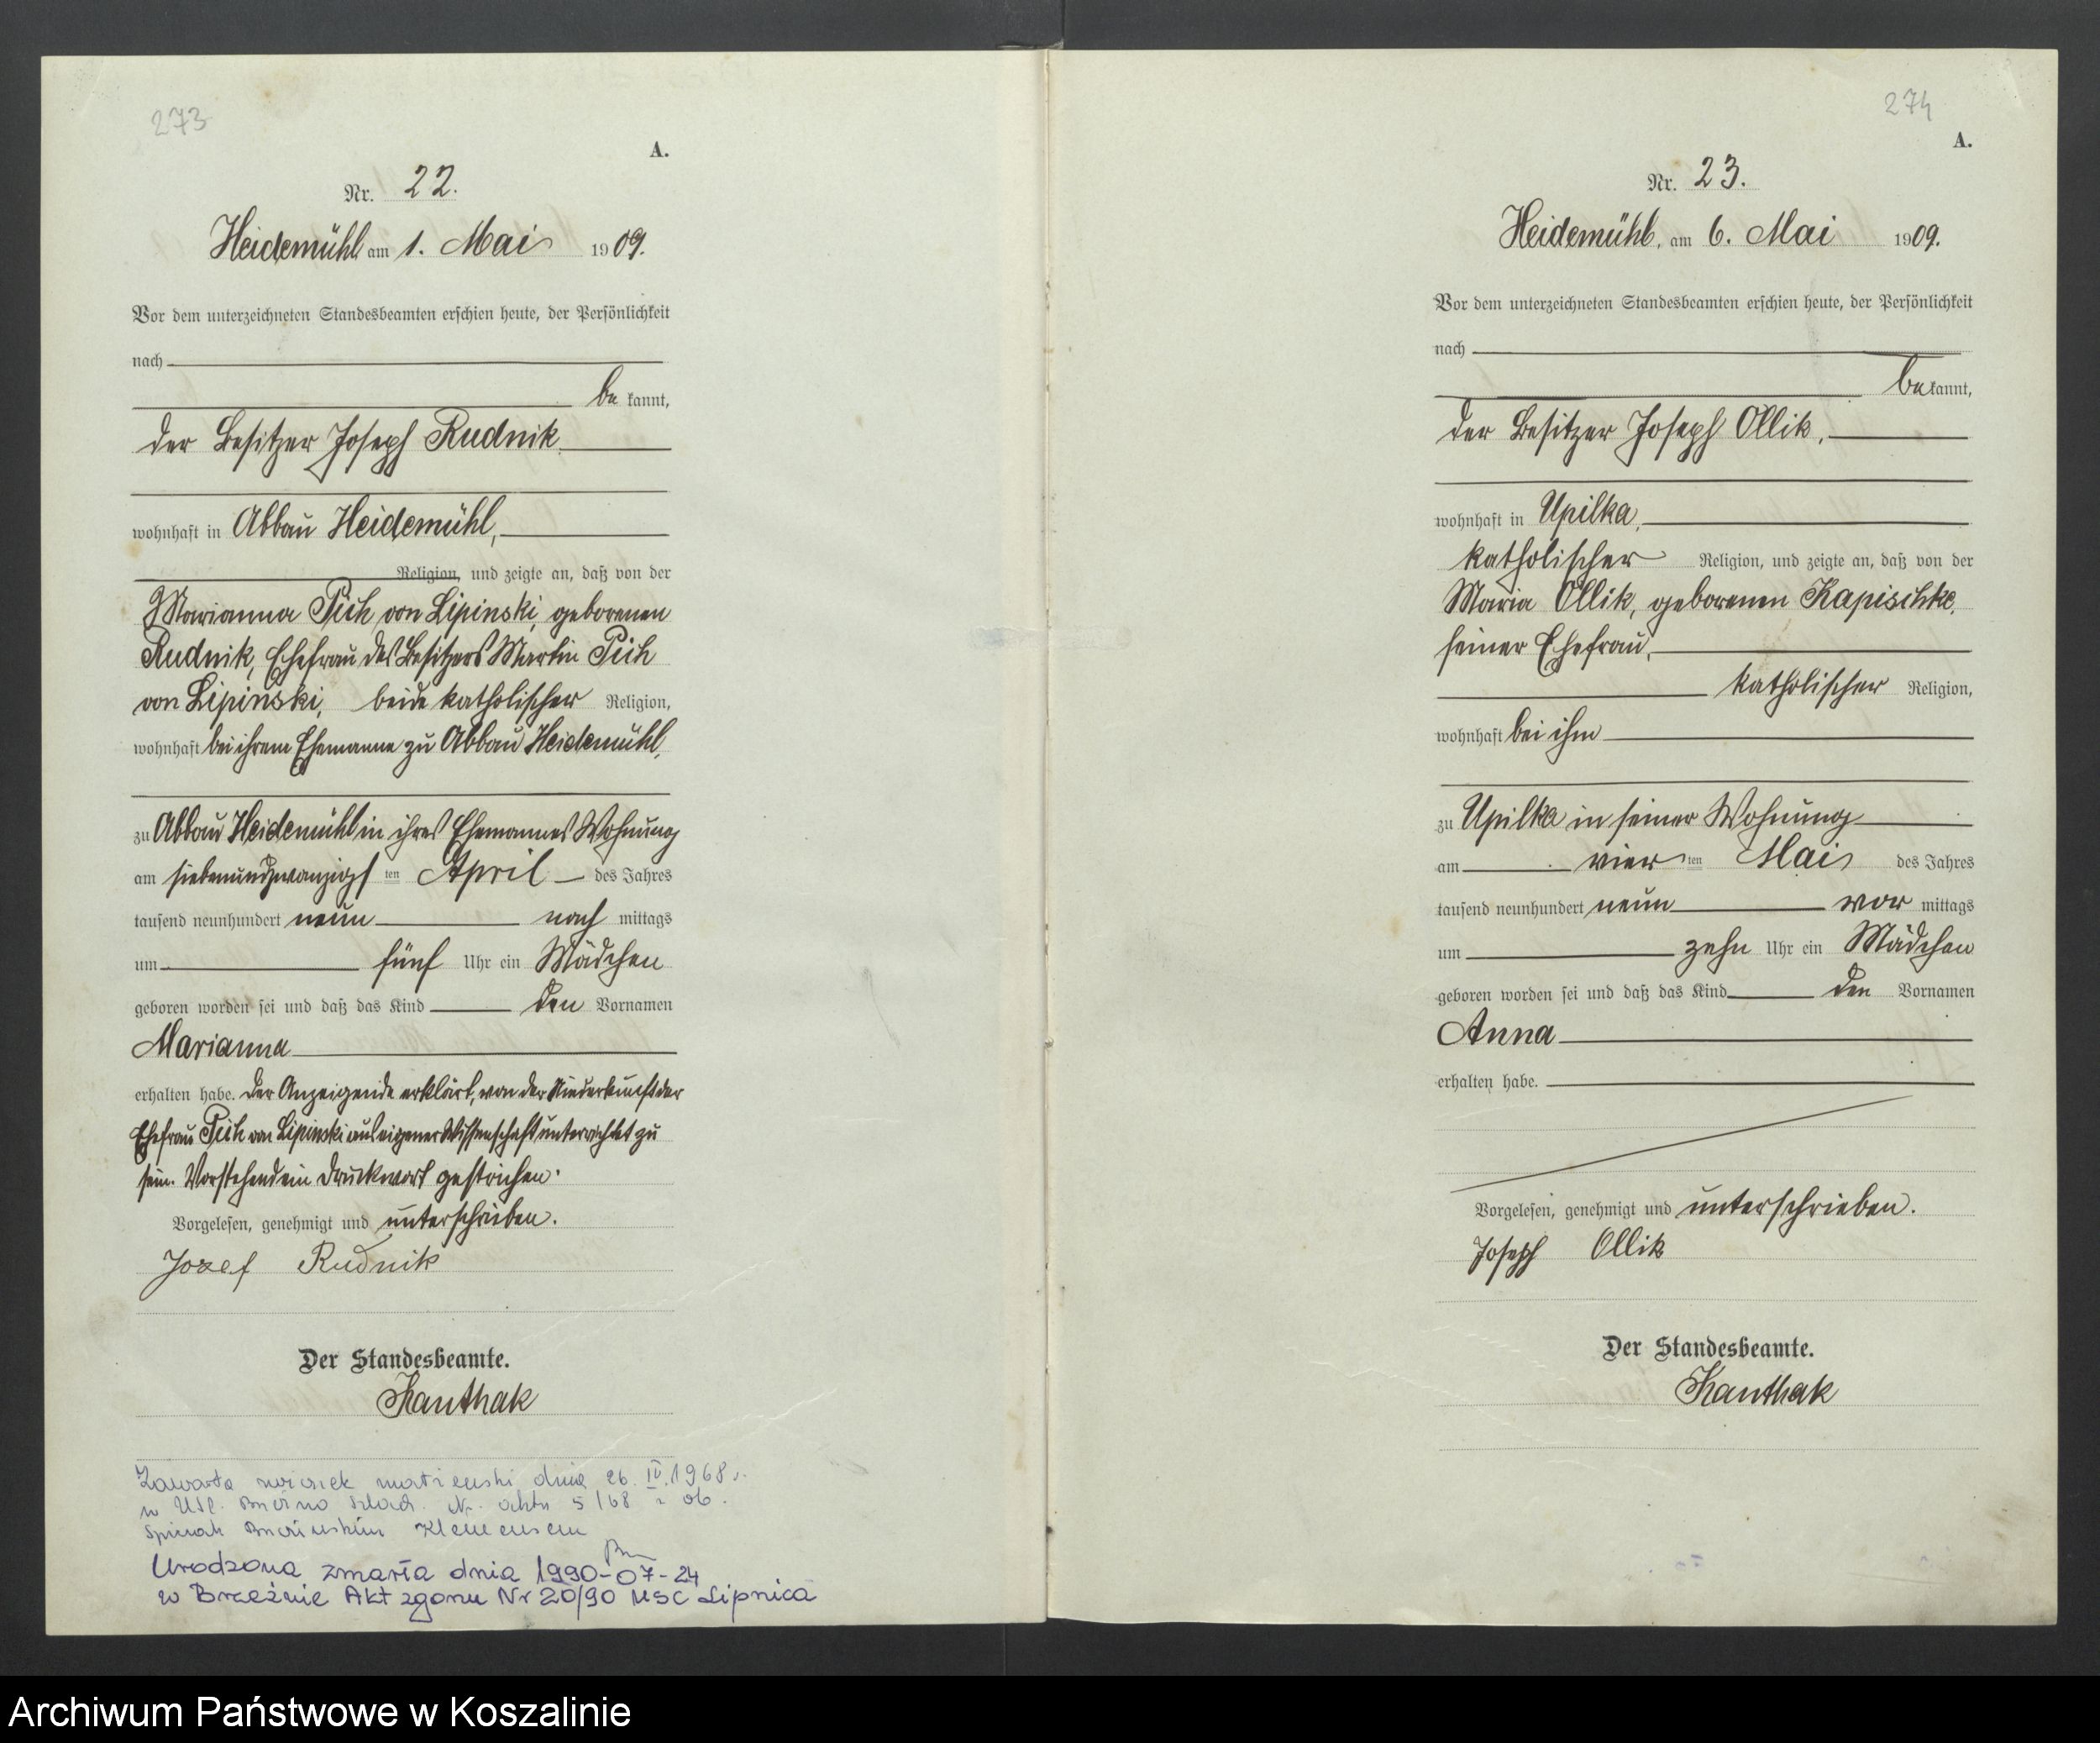 273
A.
Nr. 22.
Heidemühl am 1. Mai 1909.
Vor dem unterzeichneten Standesbeamten erschien heute, der Persönlichkeit
nach
be kannt,
der Besitzer Joseph Rudnik
wohnhaft in Abbau Heidemühl,
Religion, und zeigte an, daß von der
Marianna Pich von Lipinski, geborenen
Rudnik, Ehefrau des Besitzers Martin Pich
von Lipinski, beide katholischer Religion,
wohnhaft bei ihrem Ehemanne zu Abbau Heidemühl,
zu Abbau Heidemühl in ihres Ehemannes Wohnung
am siebenundzwanzigsten April des Jahres
tausend neunhundert neun nach mittags
um fünf Uhr ein Mädchen
geboren worden sei und daß das Kind den Vornamen
Marianna
erhalten habe. Der Anzeigende erklärt, von der Niederkunft der
Ehefrau Pich von Lipinski aus eigener Wissenschaft unterrichtet zu
sein. Vorstehend ein Druckwort gestrichen.
Vorgelesen, genehmigt und unterschrieben.
Jozef Rudnik
Der Standesbeamte.
Kanthak
dnia 26. IV. 1968 r.
w Nr. aktu 5/68 z ob.
Klemensem
Urodzona zmarła dnia 1990-07-24
w Brzeźnie Akt zgonu Nr 20/90 USC Lipnica
274
A.
Nr. 23.
Heidemühl, am 6. Mai 1909.
Vor dem unterzeichneten Standesbeamten erschien heute, der Persönlichkeit
nach
bekannt,
der Besitzer Joseph Ollik,
wohnhaft in Upilka,
katholischer Religion, und zeigte an, daß von der
Maria Ollik, geborenen Kapischke,
seiner Ehefrau,
katholischer Religion,
wohnhaft bei ihm
zu Upilka in seiner Wohnung
am vierten Mai des Jahres
tausend neunhundert neun vor mittags
um zehn Uhr ein Mädchen
geboren worden sei und daß das Kind den Vornamen
Anna
erhalten habe.
Vorgelesen, genehmigt und unterschrieben.
Joseph Ollik
Der Standesbeamte.
Kanthak
Archiwum Państwowe w Koszalinie